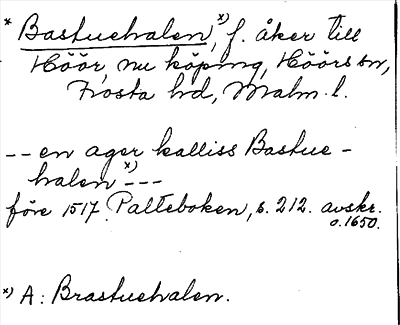 * Bastuehalen,ˣ⁾ f. åker till
Höör, nu köping, Höörs sn,
Frosta hd, Malm. l.
-- en ager kalliss Bastue-
halenˣ⁾ ---
före 1517. Palteboken, s. 212. avskr.
o. 1650.
ˣ⁾ A: Brastuehalen.